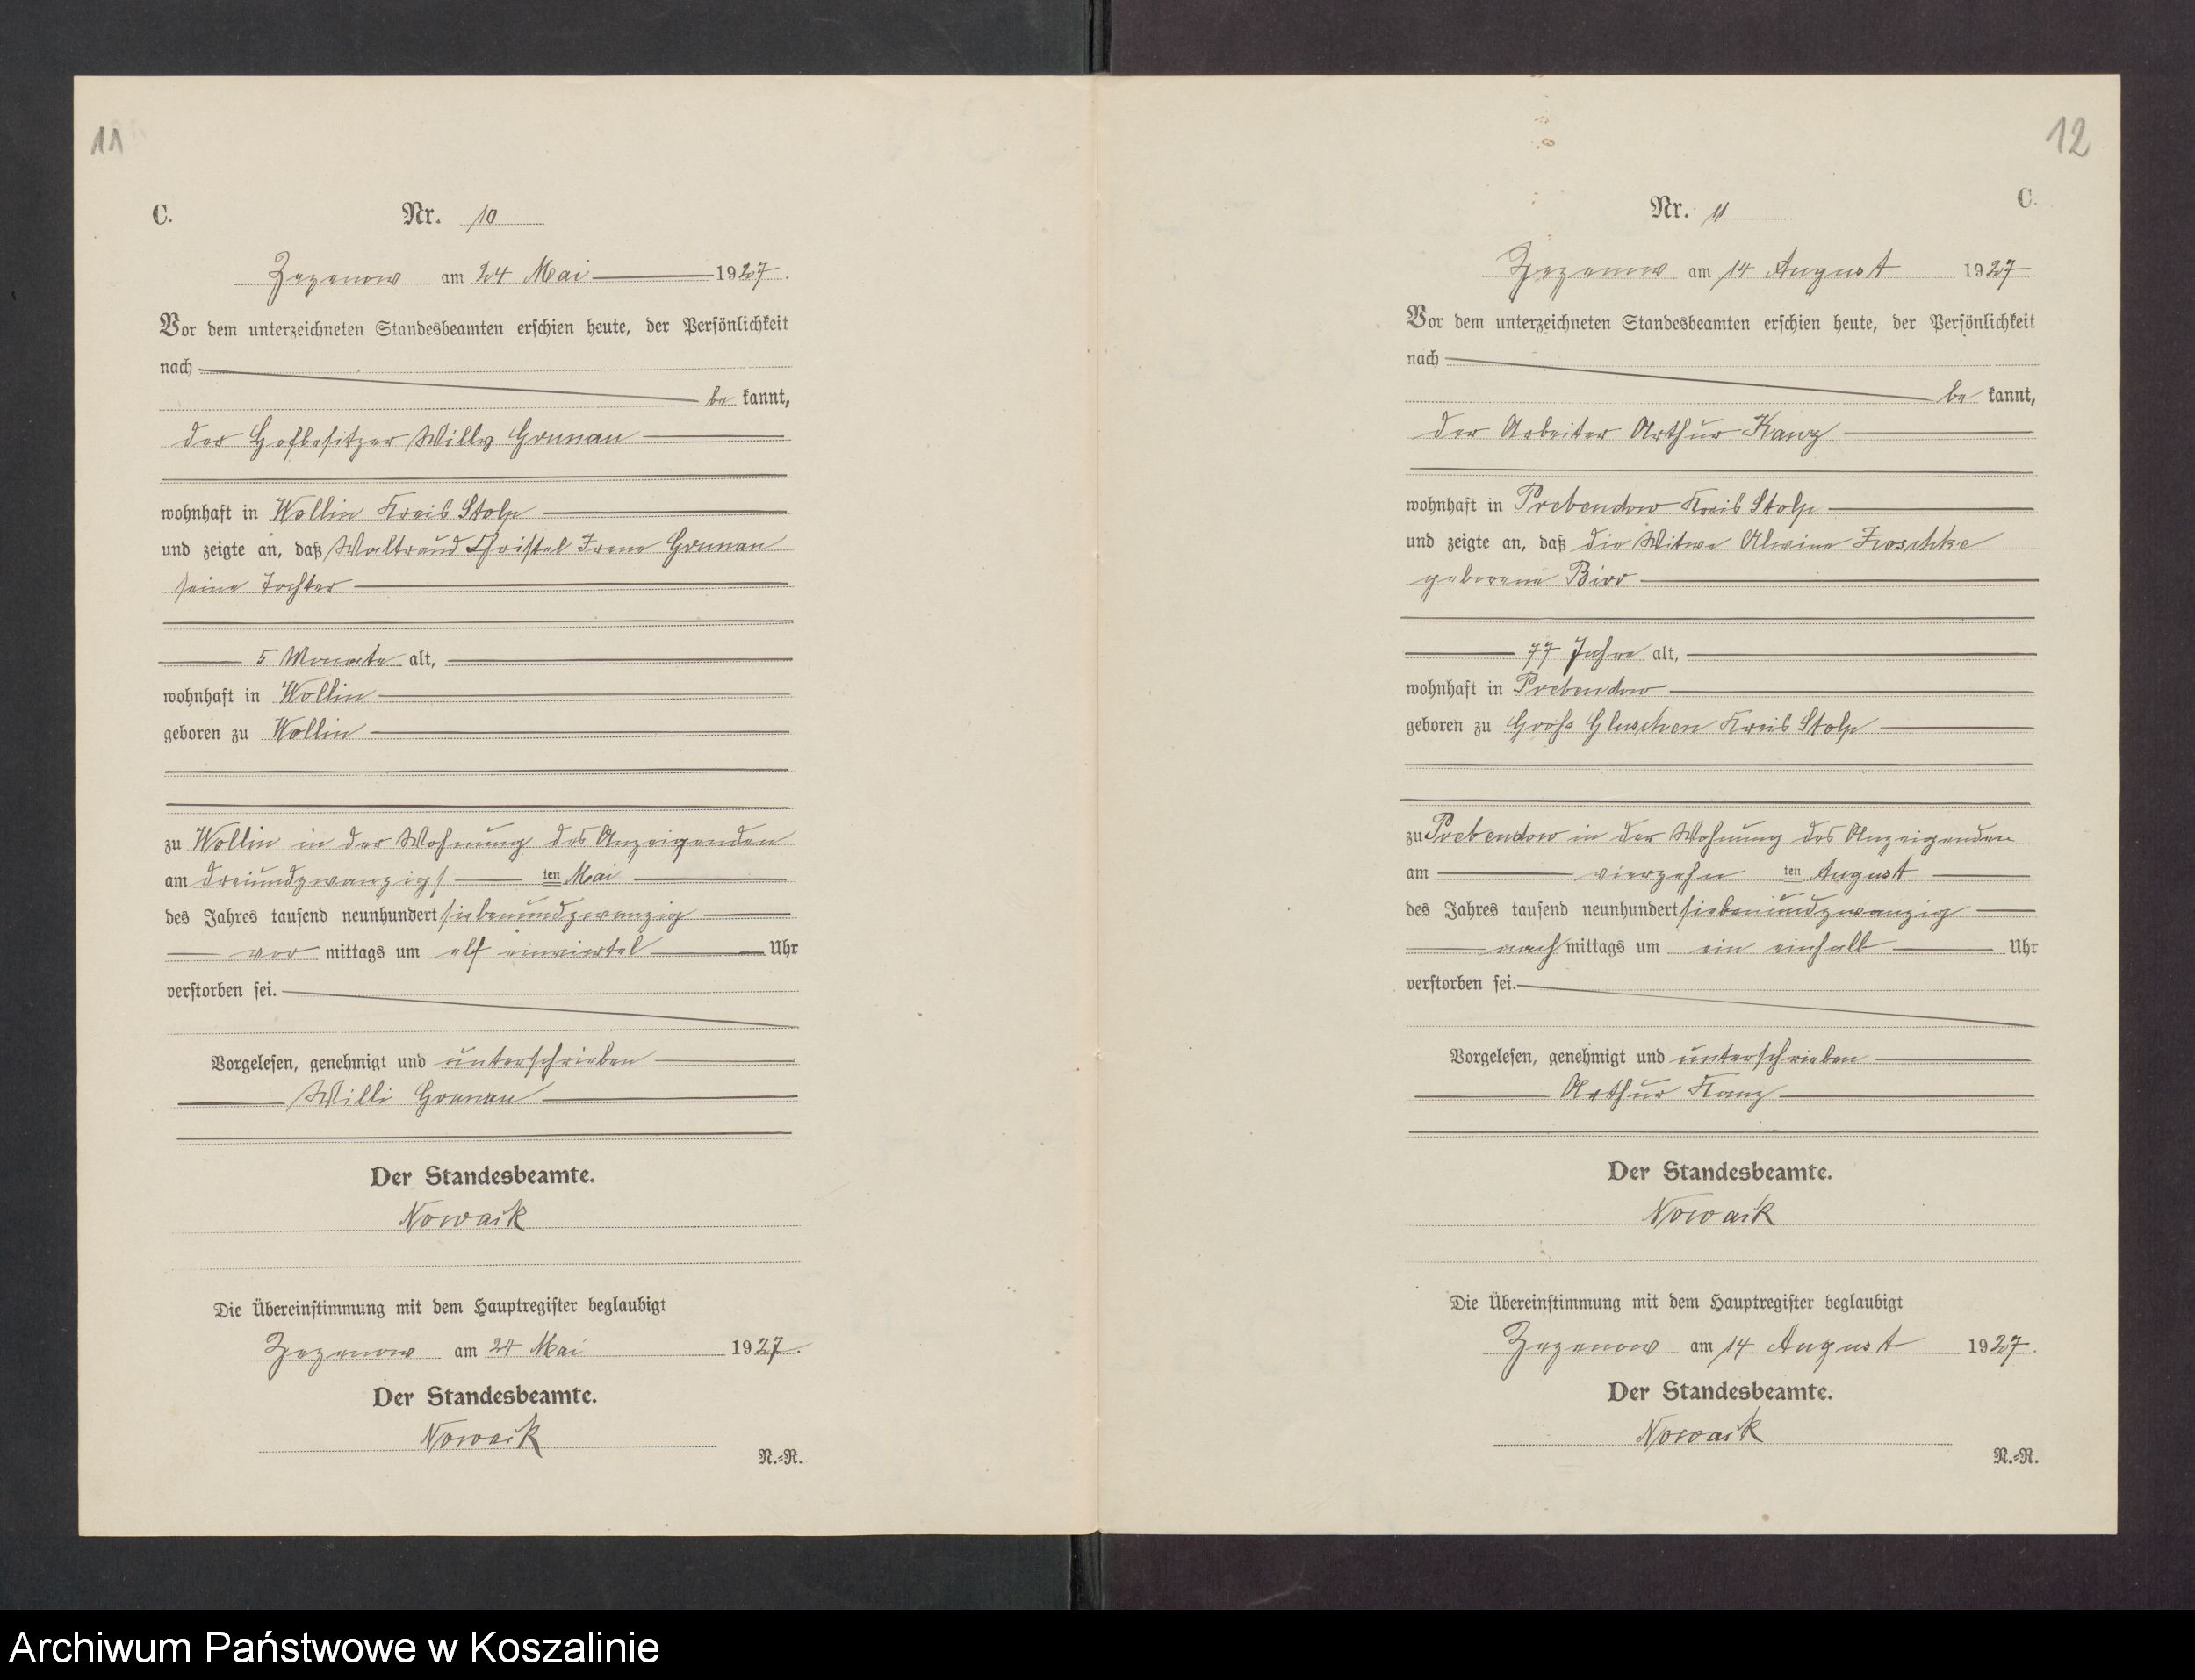 11
C.
Nr. 10
Zezenow am 24 Mai 1927.
Vor dem unterzeichneten Standesbeamten erschien heute, der Persönlichkeit
nach
be kannt,
der Hofbesitzer Willy Grunau
wohnhaft in Wollin Kreis Stolp
und zeigte an, daß Waltraud Christel Irene Grunau
seine Tochter
5 Monate alt,
wohnhaft in Wollin
geboren zu Wollin
zu Wollin in der Wohnung des Anzeigenden
am dreiundzwanzigs ten Mai
des Jahres tausend neunhundert siebenundzwanzig
vor mittags um elf einviertel Uhr
verstorben sei.
Vorgelesen, genehmigt und unterschrieben
Willi Grunau
Der Standesbeamte.
Nowack
Die Übereinstimmung mit dem Hauptregister beglaubigt
Zezenow am 24 Mai 1927.
Der Standesbeamte.
Nowack
N.=R.
12
C.
Nr. 11
Zezenow am 14 August 1927
Vor dem unterzeichneten Standesbeamten erschien heute, der Persönlichkeit
nach
be kannt,
der Arbeiter Arthur Kanz
wohnhaft in Prebendow Kreis Stolp
und zeigte an, daß die Witwe Alwine Froschke
geborene Birr
77 Jahre alt,
wohnhaft in Prebendow
geboren zu Groß Gluschen Kreis Stolp
zu Prebendow in der Wohnung des Anzeigenden
am vierzehn ten August
des Jahres tausend neunhundert siebenundzwanzig
nach mittags um ein einhalb Uhr
verstorben sei.
Vorgelesen, genehmigt und unterschrieben
Arthur Kanz
Der Standesbeamte.
Nowack
Die Übereinstimmung mit dem Hauptregister beglaubigt
Zezenow am 14 August 1927.
Der Standesbeamte.
Nowack
N.=R.
Archiwum Państwowe w Koszalinie